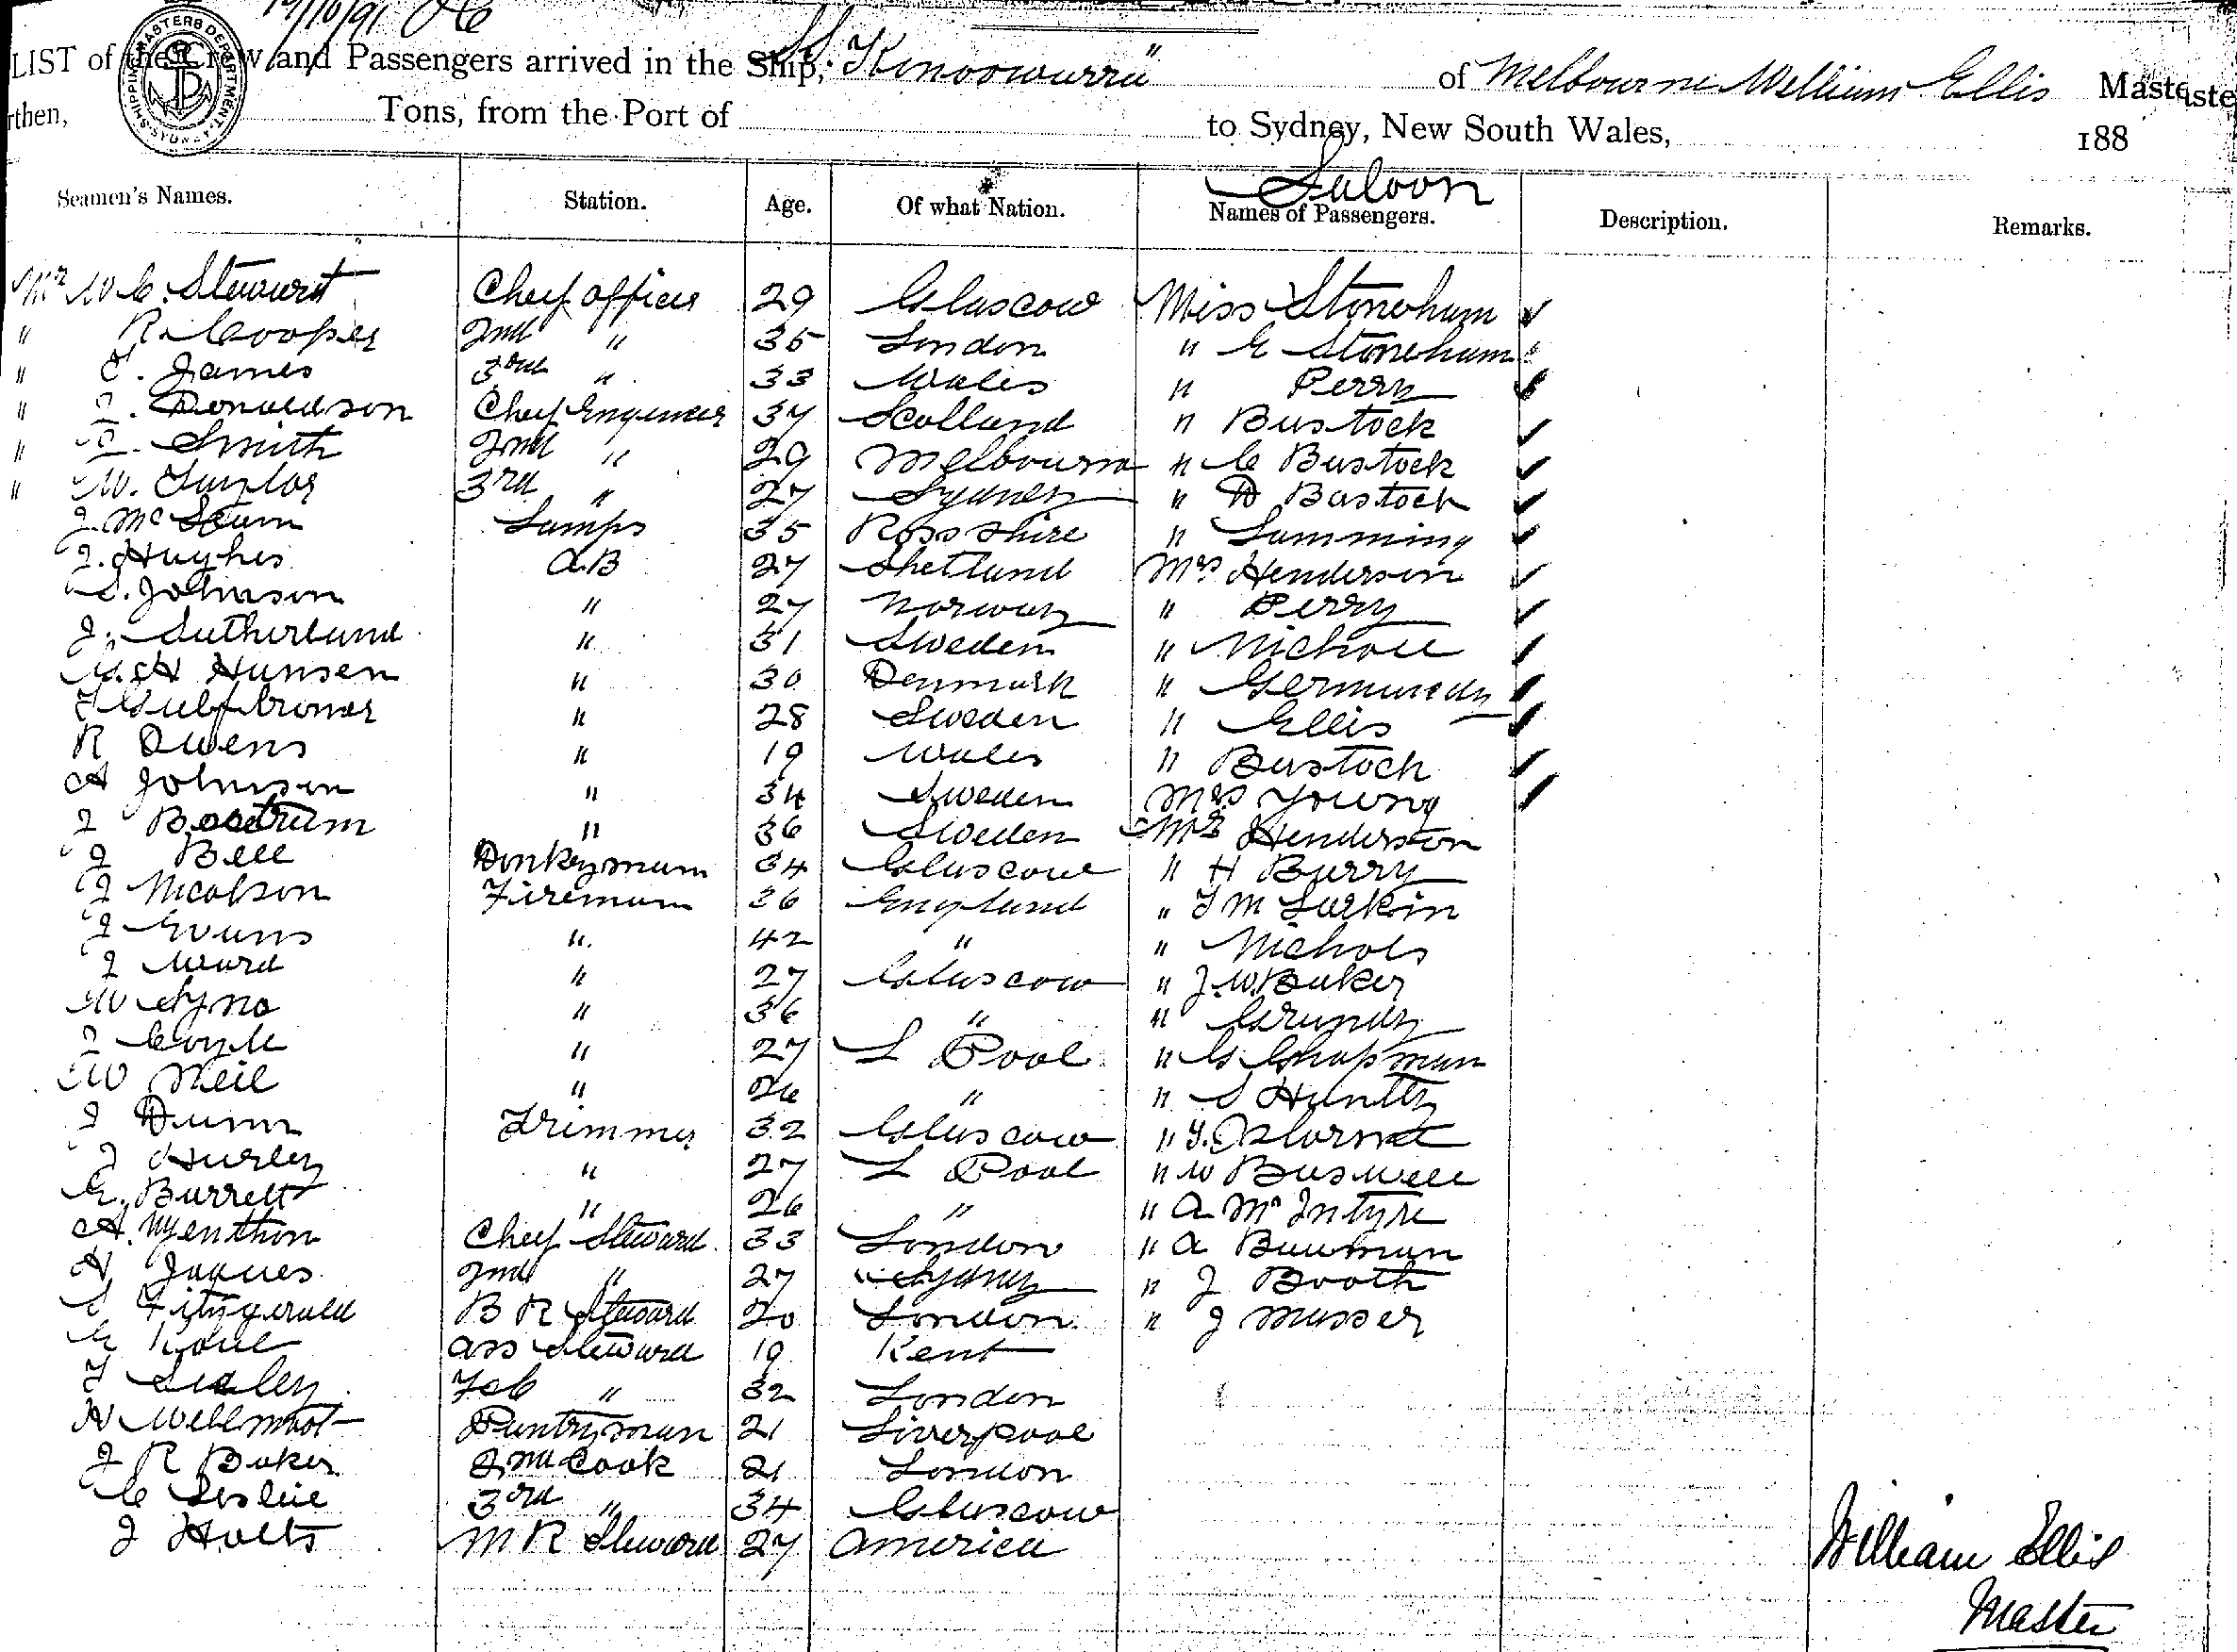 19/10/91
LIST of the Crew and Passengers arrived in the Ship, SS "Kinoowarra" of Melbourne William Ellis Master
rthen, Tons, from the Port of to Sydney, New South Wales, 188
SHIPPING MASTERS DEPARTMENT
Saloon
Seamen's Names. Station. Age. Of what Nation. Names of Passengers. Description. Remarks.
Mr W C. Stewart Cheif officer 29 Glascow Miss Stoneham
" R. Cooper 2nd " 35 London " E Stoneham
" C. James 3rd " 33 Wales " Perry
" J. Donaldson Cheif Engineer 37 Scotland " Bastock
" Smith 2nd " 29 Melbourne " C Bastock
" W. Taylor 3rd " 27 Sydney " D Bastock
J. Mc Lamps 35 Ross shire " Lamming
J. Hughes A.B 27 Shetland Mrs Henderson
Johnson " 27 Norway " Perry
J. Sutherland " 31 Sweden " Nicholl
Hansen " 30 Denmark "
" 28 Sweden " Ellis
R Owens " 19 Wales " Bastock
A Johnson " 34 Sweden Mrs Young
J Bostrum " 36 Sweden Mr Henderson
J Bell Donkeyman 34 Glascow " H Barry
J Nicolson Fireman 26 England " T M Larkin
J Evans " 42 " " Nichols
J Ward " 27 Glascow " J. W. Baker
W Syno " 36 " " Grundy
J Coyle " 27 L Pool " G Chapman
W Neil " 26 " " S
J Dunn Trimmer 32 Glascow "
J Hurley " 27 L Pool " W Baswell
E. Barrett " 26 " " A McIntyre
A. Wenthon Cheif Steward 33 London " A Bauman
H Jaques 2nd " 27 Sydney " J Booth
S Fitzgerald B R Steward 20 London " J Musser
E Ass Steward 19 Kent
T Fo C " 32 London
H Wellmot Pantryman 21 Liverpool
J R Baker 2nd Cook 21 London
C Leslie 3rd " 34 Glascow
J Holts M R Steward 27 America
William Ellis
Master